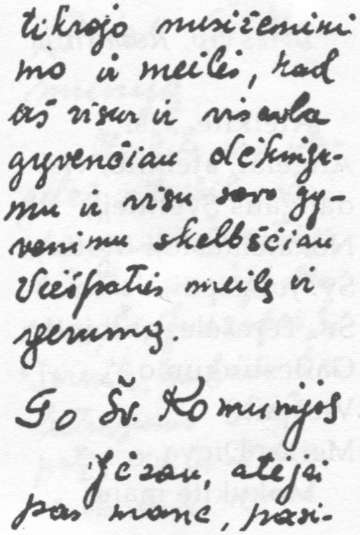 tikrojo nusižemini
mo ir meilės, kad
aš visur ir visada
gyvenčiau dėkingu-
mu ir visu savo gy-
venimu skelbščiau
Viešpaties meilę ir
gerumą.
Po Šv. Komunijos
Jėzau, atėjai
pas mane, pasi-